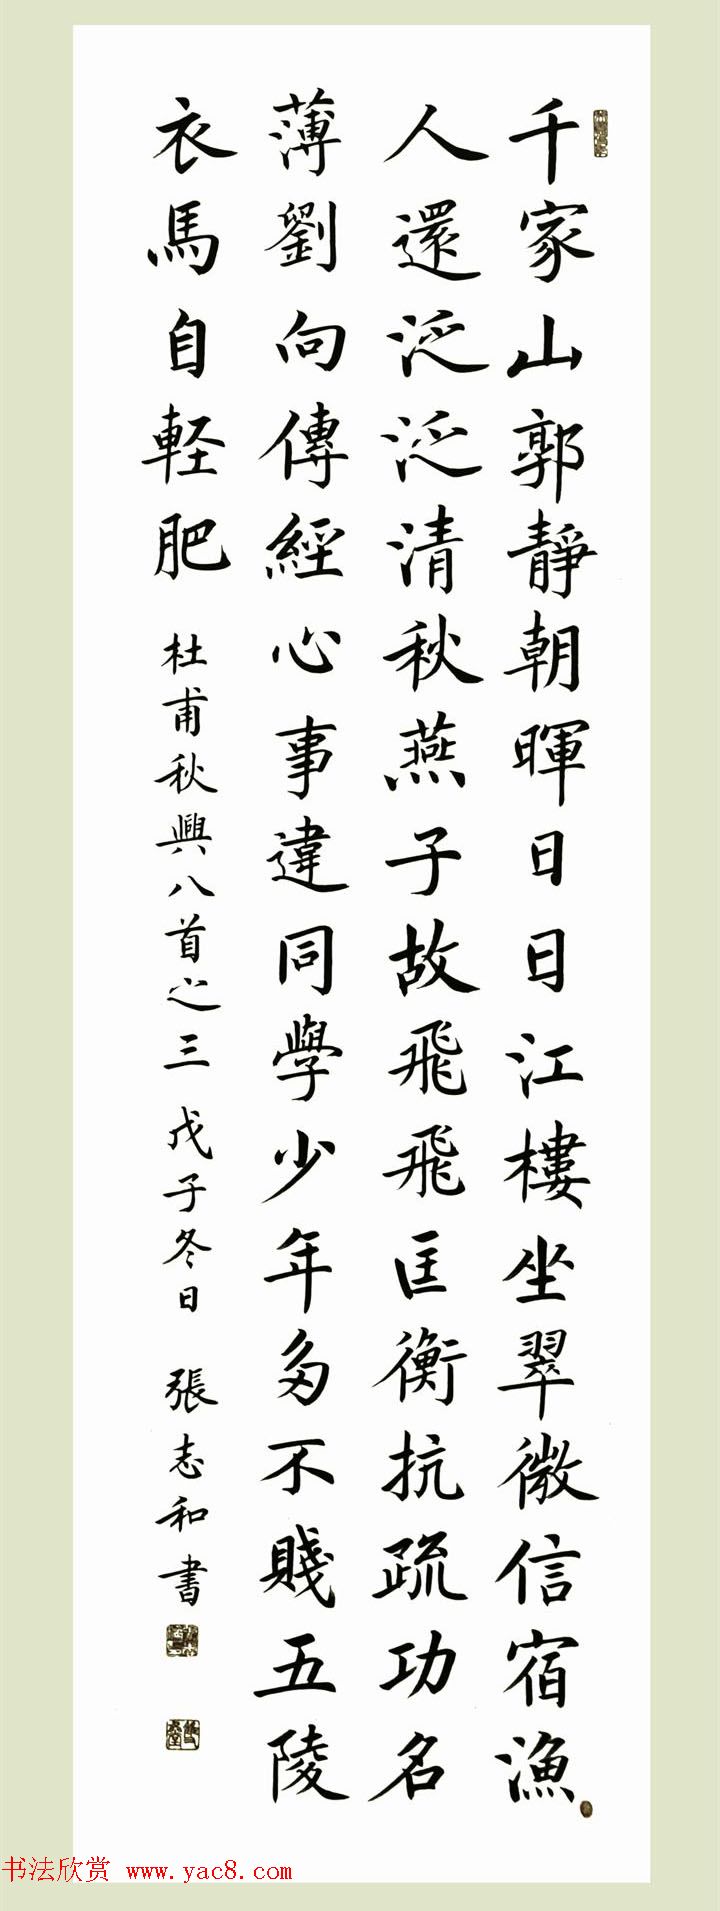 千家山郭靜朝暉日日江樓坐翠微信宿漁
人還泛泛清秋燕子故飛飛匡衡抗疏功名
薄劉向傳經心事違同學少年多不賤五陵
衣馬自軽肥
杜甫秋興八首之三 戊子冬日 張志和書
书法欣赏 www.yac8.com